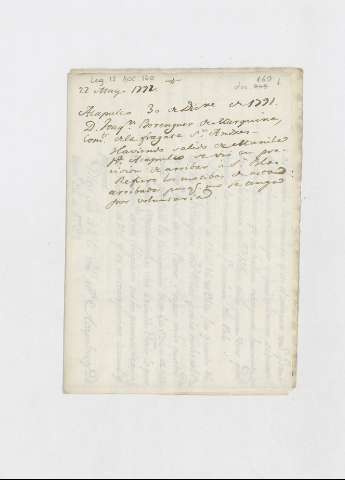 Leg 13 doc 160
160
doc
22 Mayo 1792.
Acapulco 30 de Dbre de 1791.
D. Joaqn. Berenguer de Marquina,
Comte. de la fragata Sn. Andres.
Haviendo salido de Manila
pa. Acapulco se vio en pre-
cision de arribar à
Refiere los motibos de
arribada para qe. no se tenga
por voluntaria